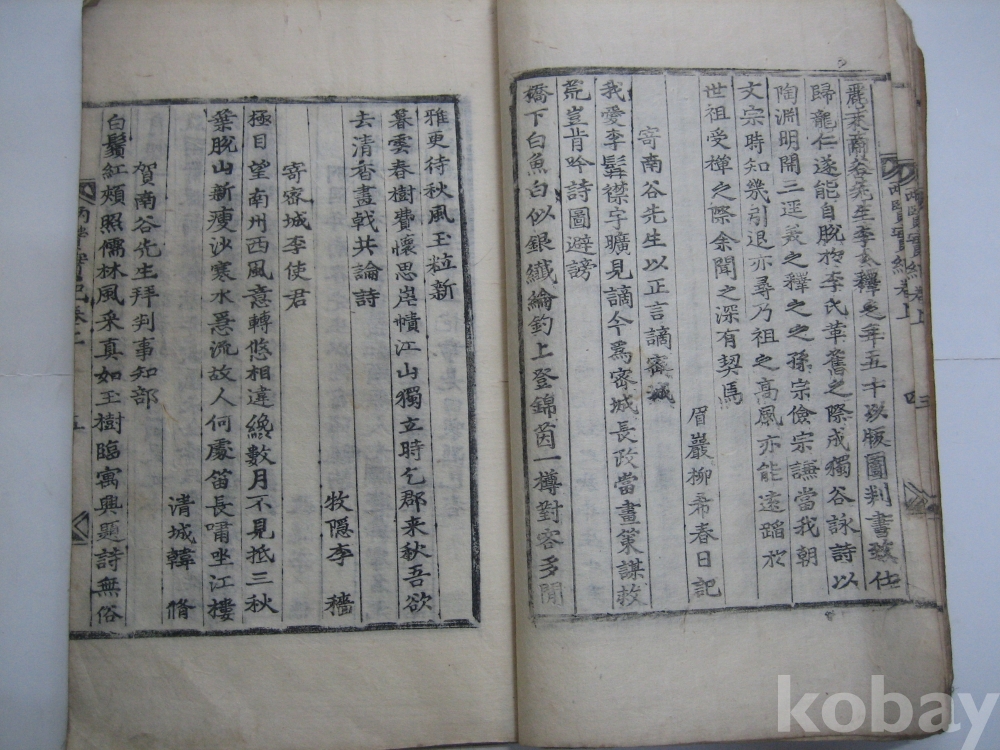 麗末南谷先生李釋之年五十以版圖判書致仕
歸龍仁遂能自脫於李氏革舊之際成獨谷詠詩以
陶淵明開三逕美之釋之之孫宗儉宗謙當我朝
文宗時知幾引退亦尋乃祖之高風亦能遠蹈於
世祖受禪之際余聞之深有契焉
眉巖柳希春日記
寄南谷先生以正言謫密城
我愛李髯襟宇曠見謫今爲密城長政當畫策謀救
荒豈肯吟詩圖避謗
橋下白魚白似銀纖綸釣上登錦茵一樽對客多閒
雅更待秋風玉粒新
暮雲春樹費懷思岸幘江山獨立時乞郡來秋吾欲
去清香畫戟共論詩
牧隱李 穡
寄密城李使君
極目望南州西風意轉悠相違纔數月不見抵三秋
葉脫山新瘦沙寒水急流故人何處笛長嘯坐江樓
清城韓 脩
賀南谷先生拜判事知部
白鬚紅頰照儒林風采真如玉樹臨寓興題詩無俗
卷上
三
五
kobay